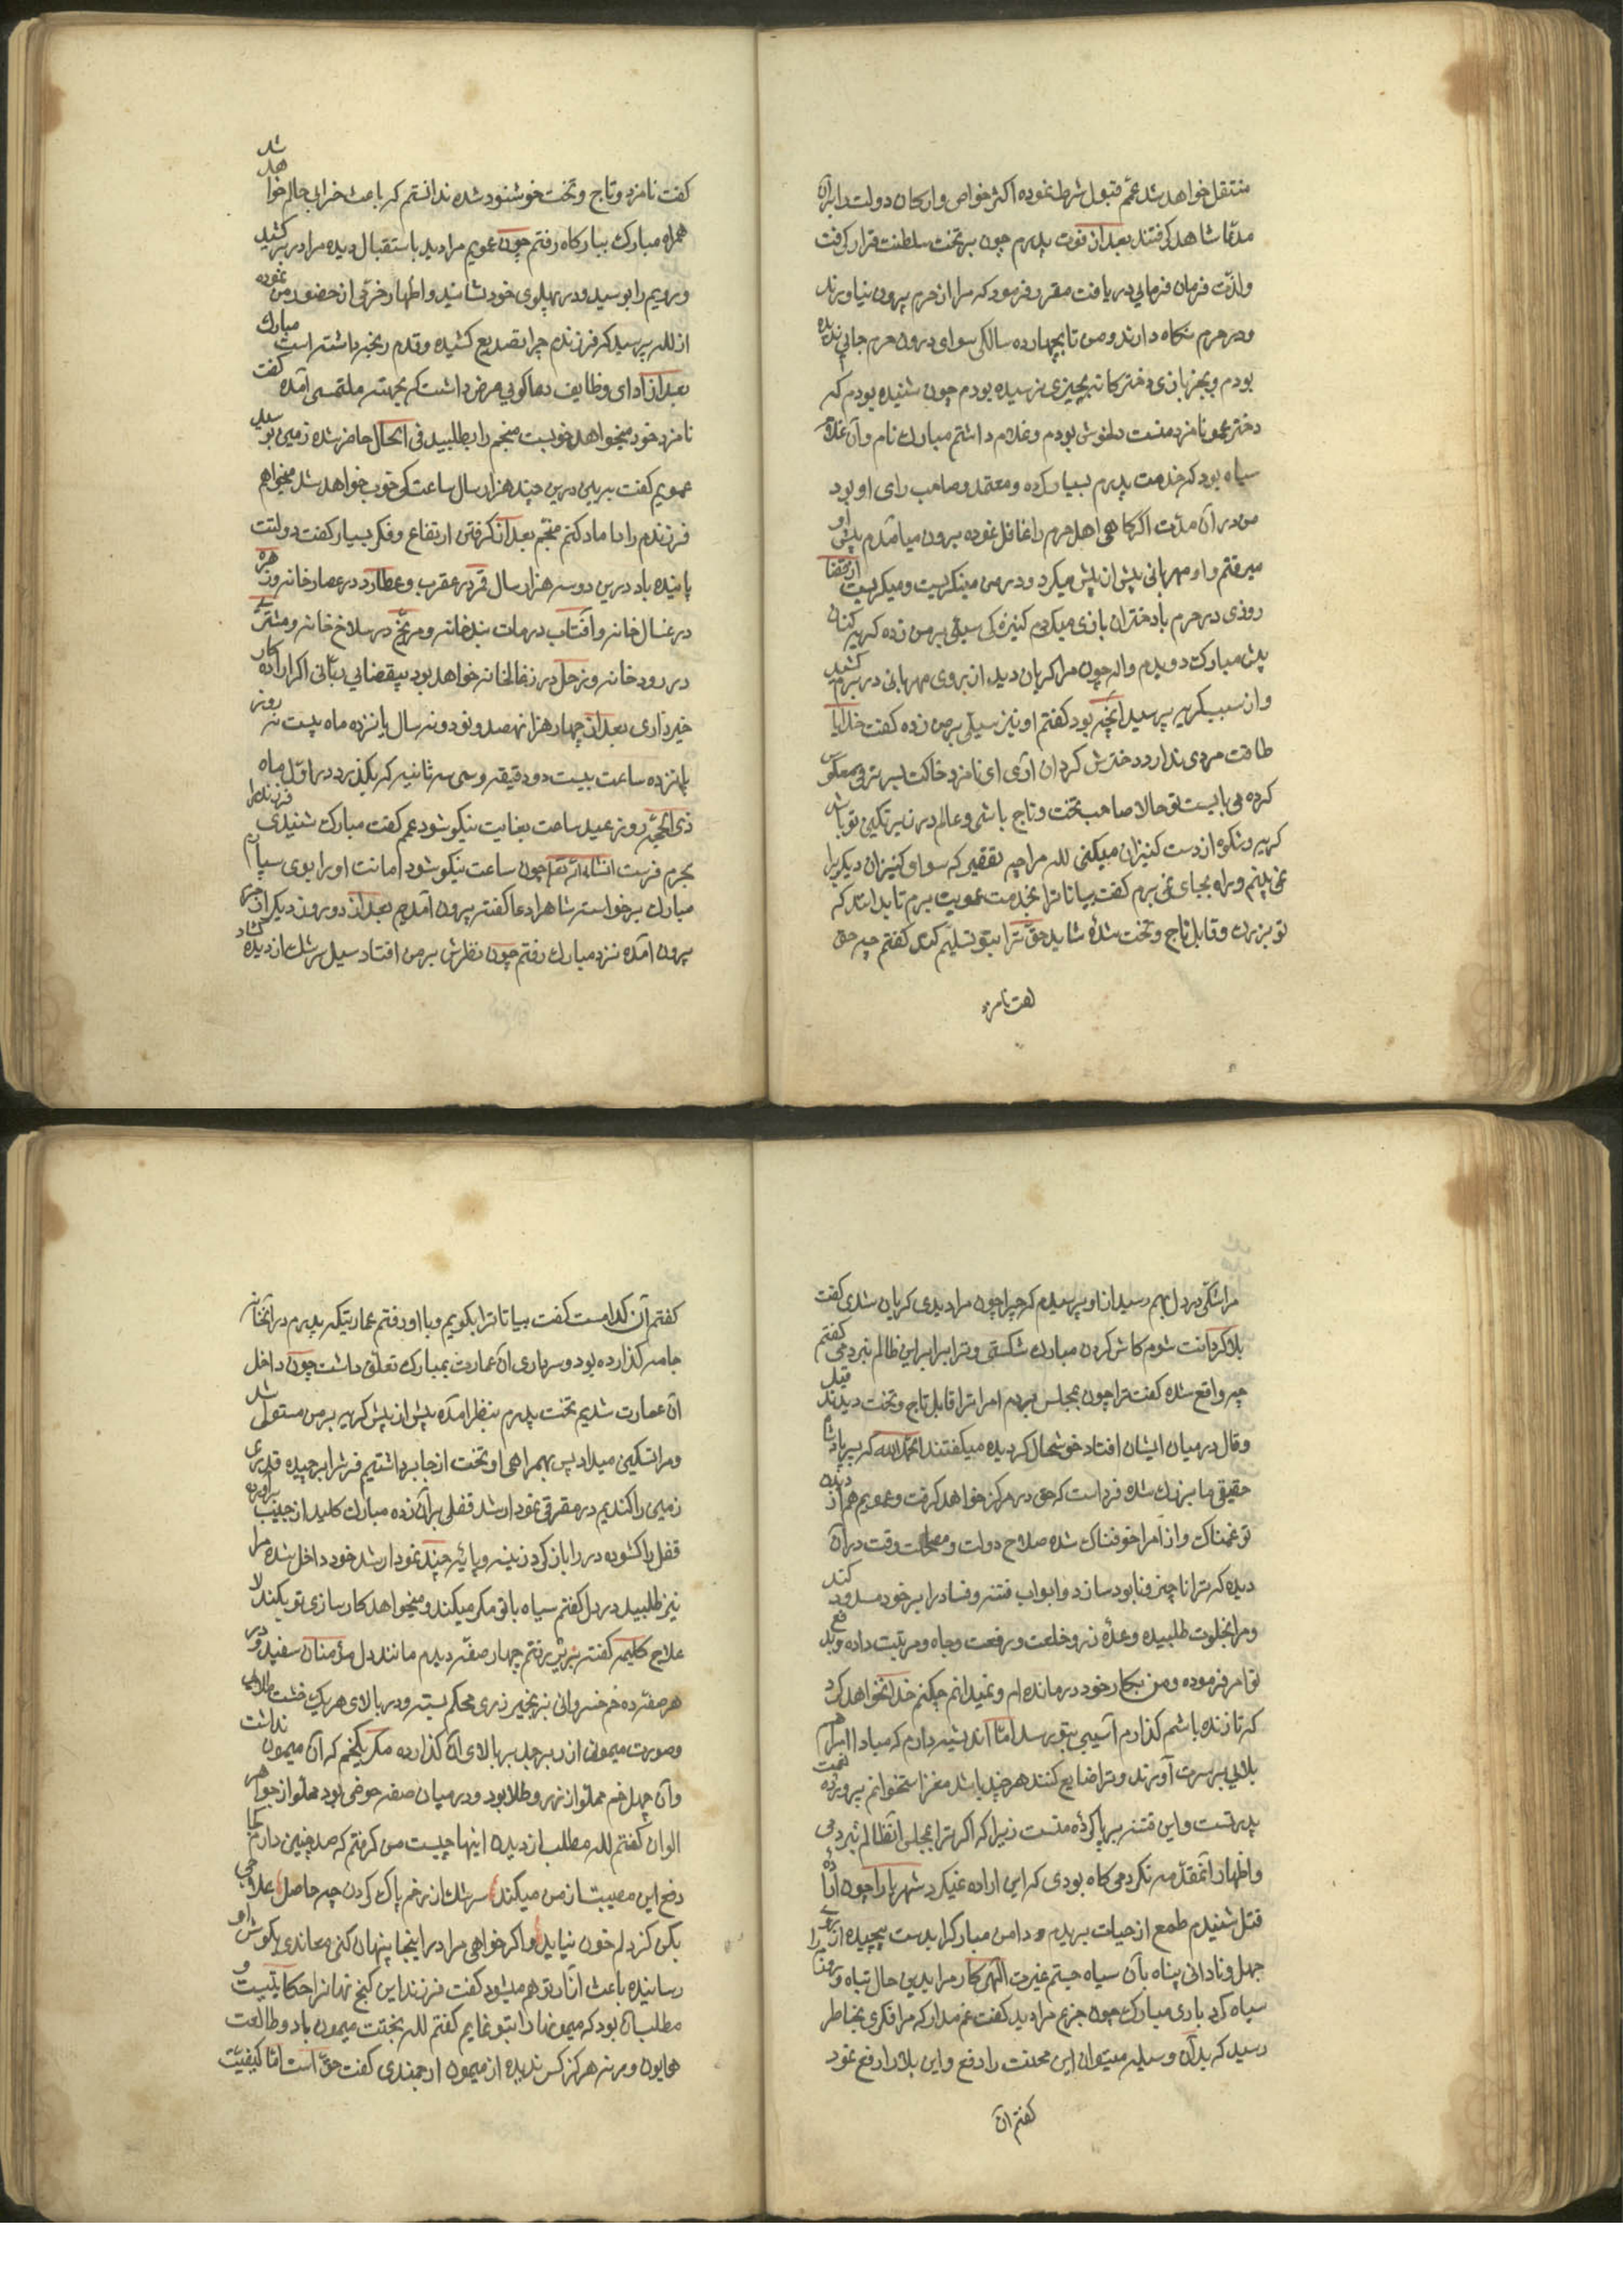 منتقل خواهد شد عمّم قبول شرط نموده اکثر خواص و ارکان دولت را بران
مدّعا شاهد گرفتند بعد از فوت پدرم چون بر تخت سلطنت قرار گرفت
و لذّت فرمان فرمایی دریافت مقرر فرمود که مرا از حرم بیرون نیاورند
و در حرم نگاه دارند و من تا بچهارده سالگی سوای درون حرم جایی ندیده
بودم و بجز بازی دخترکانه بچیزی نرسیده بودم چون شنیده بودم که
دختر عمو نامزد منست دلخوش بودم و غلام داشتم مبارک نام و آن غلام
سیاه بود که خدمت پدرم بسیار کرده و معتمد و صاحب رای او بود
من در آن مدّت اگر گاهی اهل حرم را غافل نموده بیرون می‌آمدم پیش او
میرفتم و او مهربانی پیش از پیش میکرد و در من مینگریست و میگریست از قضا
روزی در حرم با دختران بازی میکردم کنیزکی سیلی بر من زده گریه کنان
پیش مبارک دویدم واله چون مرا گریان دید از روی مهربانی در برم کشید
و از سبب گریه پرسید آنچه بود گفتم او نیز سیلی بر من زده گفت خدایا
طاقت مردی ندارد دخترش گردان آری ای نامزد خاکت بسر ترقی معکوس
کرده می بایست تو حالا صاحب تخت و تاج باشی و عالم در زیر نگین تو باشد
گریه و شکوه از دست کنیزان میکنی لله مرا چه تقصیر که سوا و کنیزان دیگر را
نمی بینم و راه بجای نمی برم گفت بیا تا ترا بخدمت عمویت برم تا بداند که
تو بزرگ و قابل تاج و تخت شدهٔ شاید حقّ ترا بتو تسلیم کند گفتم چه حق
گفت نامزد
گفت نامزد و تاج و تخت خوشنود شده ندانستم که باعث خرابی حالم خواهد شد
همراه مبارک ببارگاه رفتم چون عمویم مرا دید باستقبال دیده مرا در بر کشید
و رویم را بوسید و در پهلوی خود نشانید و اظهار خرّمی از حضور من نموده
از لله پرسید که فرزندم چرا تصدیع کشیده و قدم رنجه داشته است مبارک
بعد از ادای وظایف دعاگویی عرض داشت که بجهت ملتمسی آمده گفت
نامزد خود میخواهد خوبست منجم را بطلبید فی الحال حاضر شده زمین بوسید
عمویم گفت ببین درین چند هزار سال ساعت کی خوب خواهد شد میخواهم
فرزندم را داماد کنم منجّم بعد از گرفتن ارتفاع و فکر بسیار گفت دولتت
پاینده باد درین دو سه هزار سال قمر در عقرب و عطارد در عصارخانه و زهره
در غسال خانه و آفتاب در مات بندخانه و مریخ در سلاخ خانه و مشتری
در رودخانه و زحل در زغالخانه خواهد بود بیقضایی ربّانی اگر اراده کار
خیر داری بعد از چهار هزار نهصد و نود و نه سال یازده ماه بیست نه روز
پانزده ساعت بیست دو دقیقه و سی سه ثانیه که بگذرد در اوّل ماه
ذی الحجّه روز عید ساعت بغایت نیکو شود عمم گفت مبارک شنیدی فرزند را
بحرم فرست انشاء الله تعالی چون ساعت نیکو شود امانت او را بوی سپارم
مبارک برخواسته شاه را دعا گفته بیرون آمدیم بعد از دو روز دیگر از حرم
بیرون آمده نزد مبارک رفتم چون نظرش بر من افتاد سیل سرشک از دیده گشاد
مرا شکّی در دل بهم رسید از او پرسیدم که چرا چون مرا دیدی گریان شدی گفت
بلا گردانت شوم کاش گردن مبارک شکستی و ترا برابر این ظالم نبردمی گفتم
چه واقع شده گفت ترا چون بمجلس بردم امرا ترا قابل تاج و تخت دیدند قیل
و قال در میان ایشان افتاد خوشحال گردیده میگفتند الحمد لله که پسر پادشاه
حقیقی ما بزرگ شده فرداست که حق در مرکز خواهد گرفت و عمویم هم از دیدن
تو غمناک و از امرا خوفناک شده صلاح دولت و مصلحت وقت در آن
دیده که ترا ناچیز و نابود سازد و ابواب فتنه و فساد را بر خود مسدود کند
و مرا بخلوت طلبیده وعدهٔ زر و خلعت و رفعت و جاه و مرتبت داده و بدفع
تو امر فرموده و من بکار خود درمانده ام و نمیدانم چکنم خدا نخواهد کرد
که تا زنده باشم گذارم آسیبی بتو رسد امّا اندیشه دارم که مبادا امرا هم
بلایی بر سرت آورند و ترا ضایع کنند هر چند باشد مغز استخوانم پرورده نعمت
پدر تست و این فتنه برپا کردهٔ منست زیرا که اگر ترا بمجلس آن ظالم نبردمی
و اظهار آنمقدّمه نکردمی کاه بودی که این اراده نمیکرد شهریارا چون ارادهٔ
قتل شنیدم طمع از حیات بریدم و دامن مبارک را بدست پیچیده از بی
جهل و نادانی پناه بآن سیاه جستم غیرت الهی کار مرا بدین حال تباه و روزم را
سیاه کرد باری مبارک چون جزع مرا دید گفت غم مدار که مرا فکری بخاطر
رسید که بدان وسیله میتوان این محنت را دفع و این بلا را رفع نمود
گفتم آن
گفتم آن کدامست گفت بیا تا ترا بگویم و با او رفتم عمارتیکه پدرم در آنجا
جامه گذارده بود و سرداری آن عمارت بمبارک تعلّق داشت چون داخل
آن عمارت شدیم تخت پدرم بنظر آمده پیش از پیش گریه بر من مستولی شد
و مرا تسکین میداد پس بهمراهی او تخت از جا برداشتیم فرش را برچیده قدری
زمین را کندیم در مقرقی نمودار شد قفلی بر آن زده مبارک کلید از جیب برآورده
قفل را گشوده در را باز کرد زینه و پایهٔ چند نمودار شد خود داخل شده مرا
نیز طلبید در دل گفتم سیاه با تو مکر میکند و میخواهد کارسازی تو بکند لا
علاج کلیمه گفته بزیر رفتم چهار صفّه دیدم مانند دل مؤمنان سفید و در
هر صفّه ده خم خسروانی بزنجیر زری محکم بسته و در بالای هر یک خشت طلایی
و صورت میمونی از زبرجد بر بالای آن گذارده مگر یکخم که آن میمون نداشت
و آن چهل خم مملو از زر و طلا بود و در میان صفّه حوضی بود مملو از جواهر
الوان گفتم لله مطلب از دیدن اینها چیست من گرفتم که صد چنین دارم کجا
دفع این مصیبت از من میکند سرشک از رخم پاک کردن چه حاصل علاجی
بکن کز دلم خون نیاید و اگر خواهی مرا در اینجا پنهان کنی معاندی بگوش او
رسانیده باعث آثار توهم میشود گفت فرزند این گنج نهان را حکایتیست و
مطلب آن بود که میمونها را بتو نمایم گفتم لله بختت میمون باد و طالعت
همایون و مرنه هرگز کس ندیده از میمون ارجمندی گفت حقّ است امّا کیفیّت